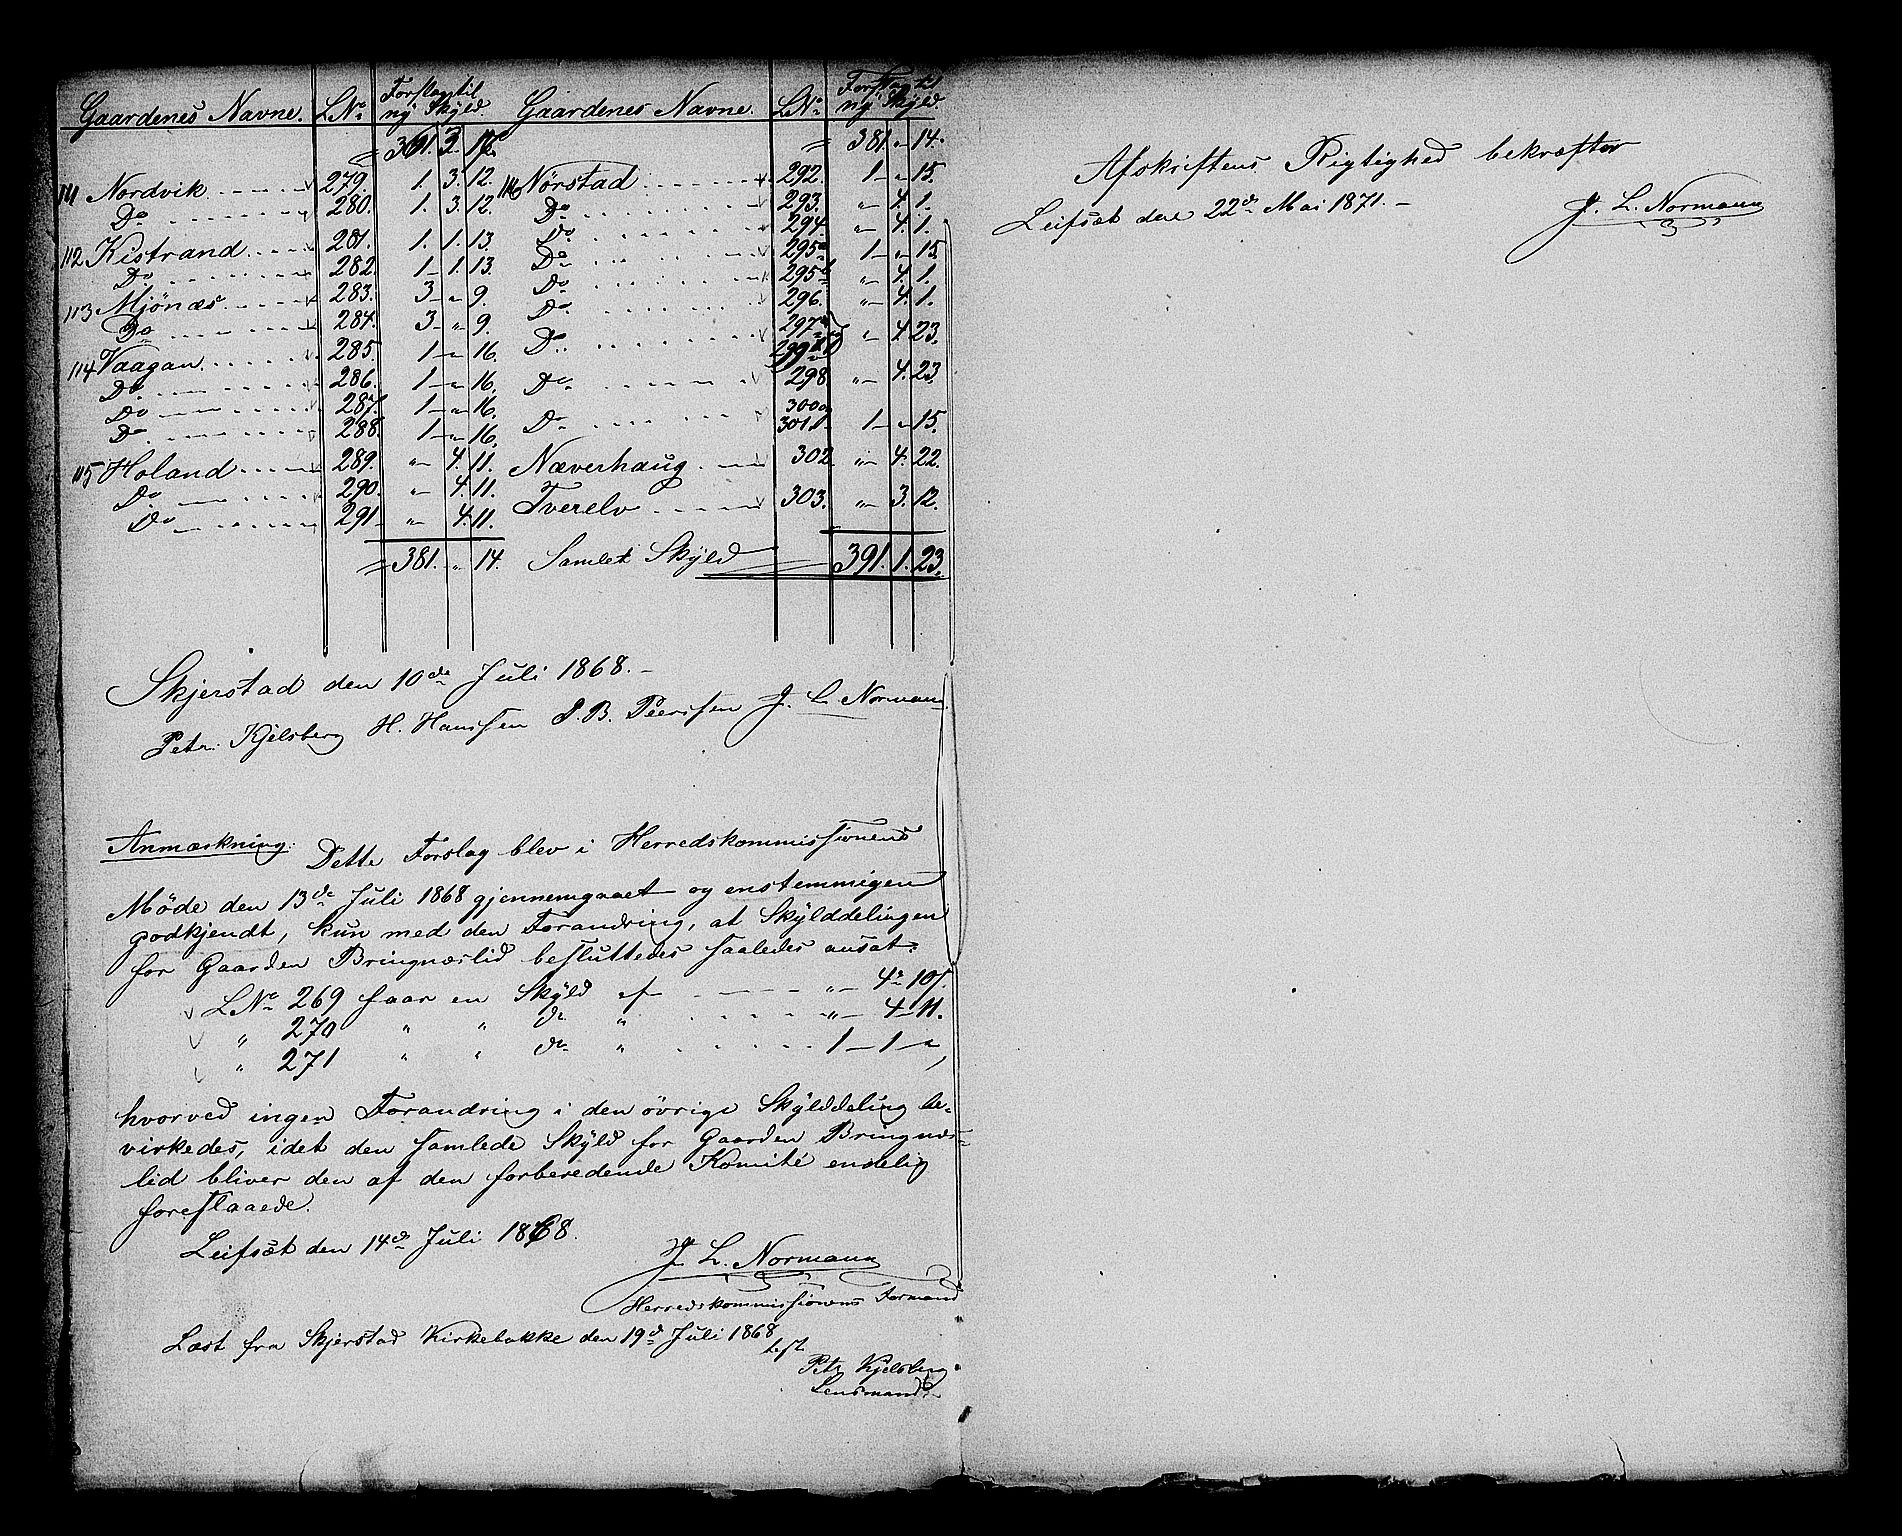 Gaardenes Navne. LNo. Forslag til ny Skyld.
" 361. 3. 17.
111 Nordvik 279. 1. 3. 12.
Do 280. 1. 3. 12.
112 Kistrand 281. 1. 1. 13.
Do 282. 1 1. 13.
113 Mjönæs 283. 3 " 9.
Do 284. 3 " 9.
114 Vaagan 285. 1 " 16.
Do 286. 1 " 16.
Do 287. 1 " 16.
Do 288. 1 " 16.
115 Holand 289. " 4. 11.
Do 290. " 4. 11.
Do 291 " 4. 11.
381. " 14.
Gaardenes Navne. LNo. Forslag til ny Skyld.
" 381. " 14.
116 Nørstad 292. 1 " 15.
Do 293. " 4. 1.
Do 294. " 4. 1.
Do 295a 1 " 15.
Do 295b " 4. 1.
Do 296. " 4. 1.
Do 297a " 4. 23.
Do 298. " 4. 23.
Do 300a 301. 1 " 15.
Næverhaug 302. " 4. 22.
Tverelv 303. " 3. 12.
Samlet Skyld 391. 1. 23.
Skjerstad den 10de Juli 1868.
Petr. Kjelsberg H. Hanssen P. B. Peersen J. L. Normann
Anmærkning: Dette Forslag blev i Herredskommissionens
Møde den 13de Juli 1868 gjennemgaaet og enstemmigen
godkjendt, kun med den Forandring, at Skylddelingen
for Gaarden Bringnæslid besluttedes saaledes ansat:
LNo 269 faar en Skyld af " 4 " 10.
" 270 " " do " " 4 - 11.
" 271 " " do " 1 - 1 - ",
hvorved ingen Forandring i den övrige Skylddeling be-
virkedes, idet den samlede Skyld for Gaarden Bringnæs-
lid bliver den af den forberedende Komité endelig
foreslaaede.
Leifsæt den 14de Juli 1868.
J. L. Normann
Herredskommissionens Formand
Læst fra Skjerstad Kirkebakke den 19de Juli 1868
Petr Kjelsberg
Lensmand
Afskriftens Rigtighed bekræfter
Leifsæt den 22de Mai 1871.
J. L. Normann